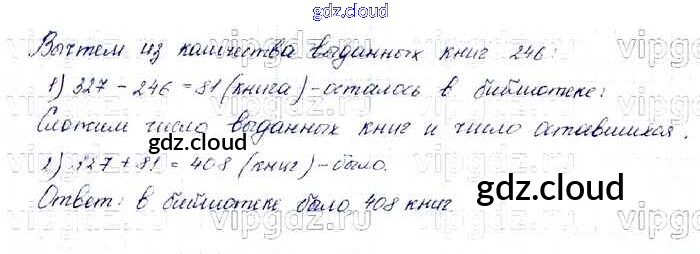 gdz.cloud
Вычтем из количества выданных книг 246:
1) 327 - 246 = 81 (книга) - осталось в библиотеке:
Сложим число выданных книг и число оставшихся.
gdz.cloud
2) 327 + 81 = 408 (книг) - было.
gdz.cloud
Ответ: в библиотеке было 408 книг.
gdz.cloud